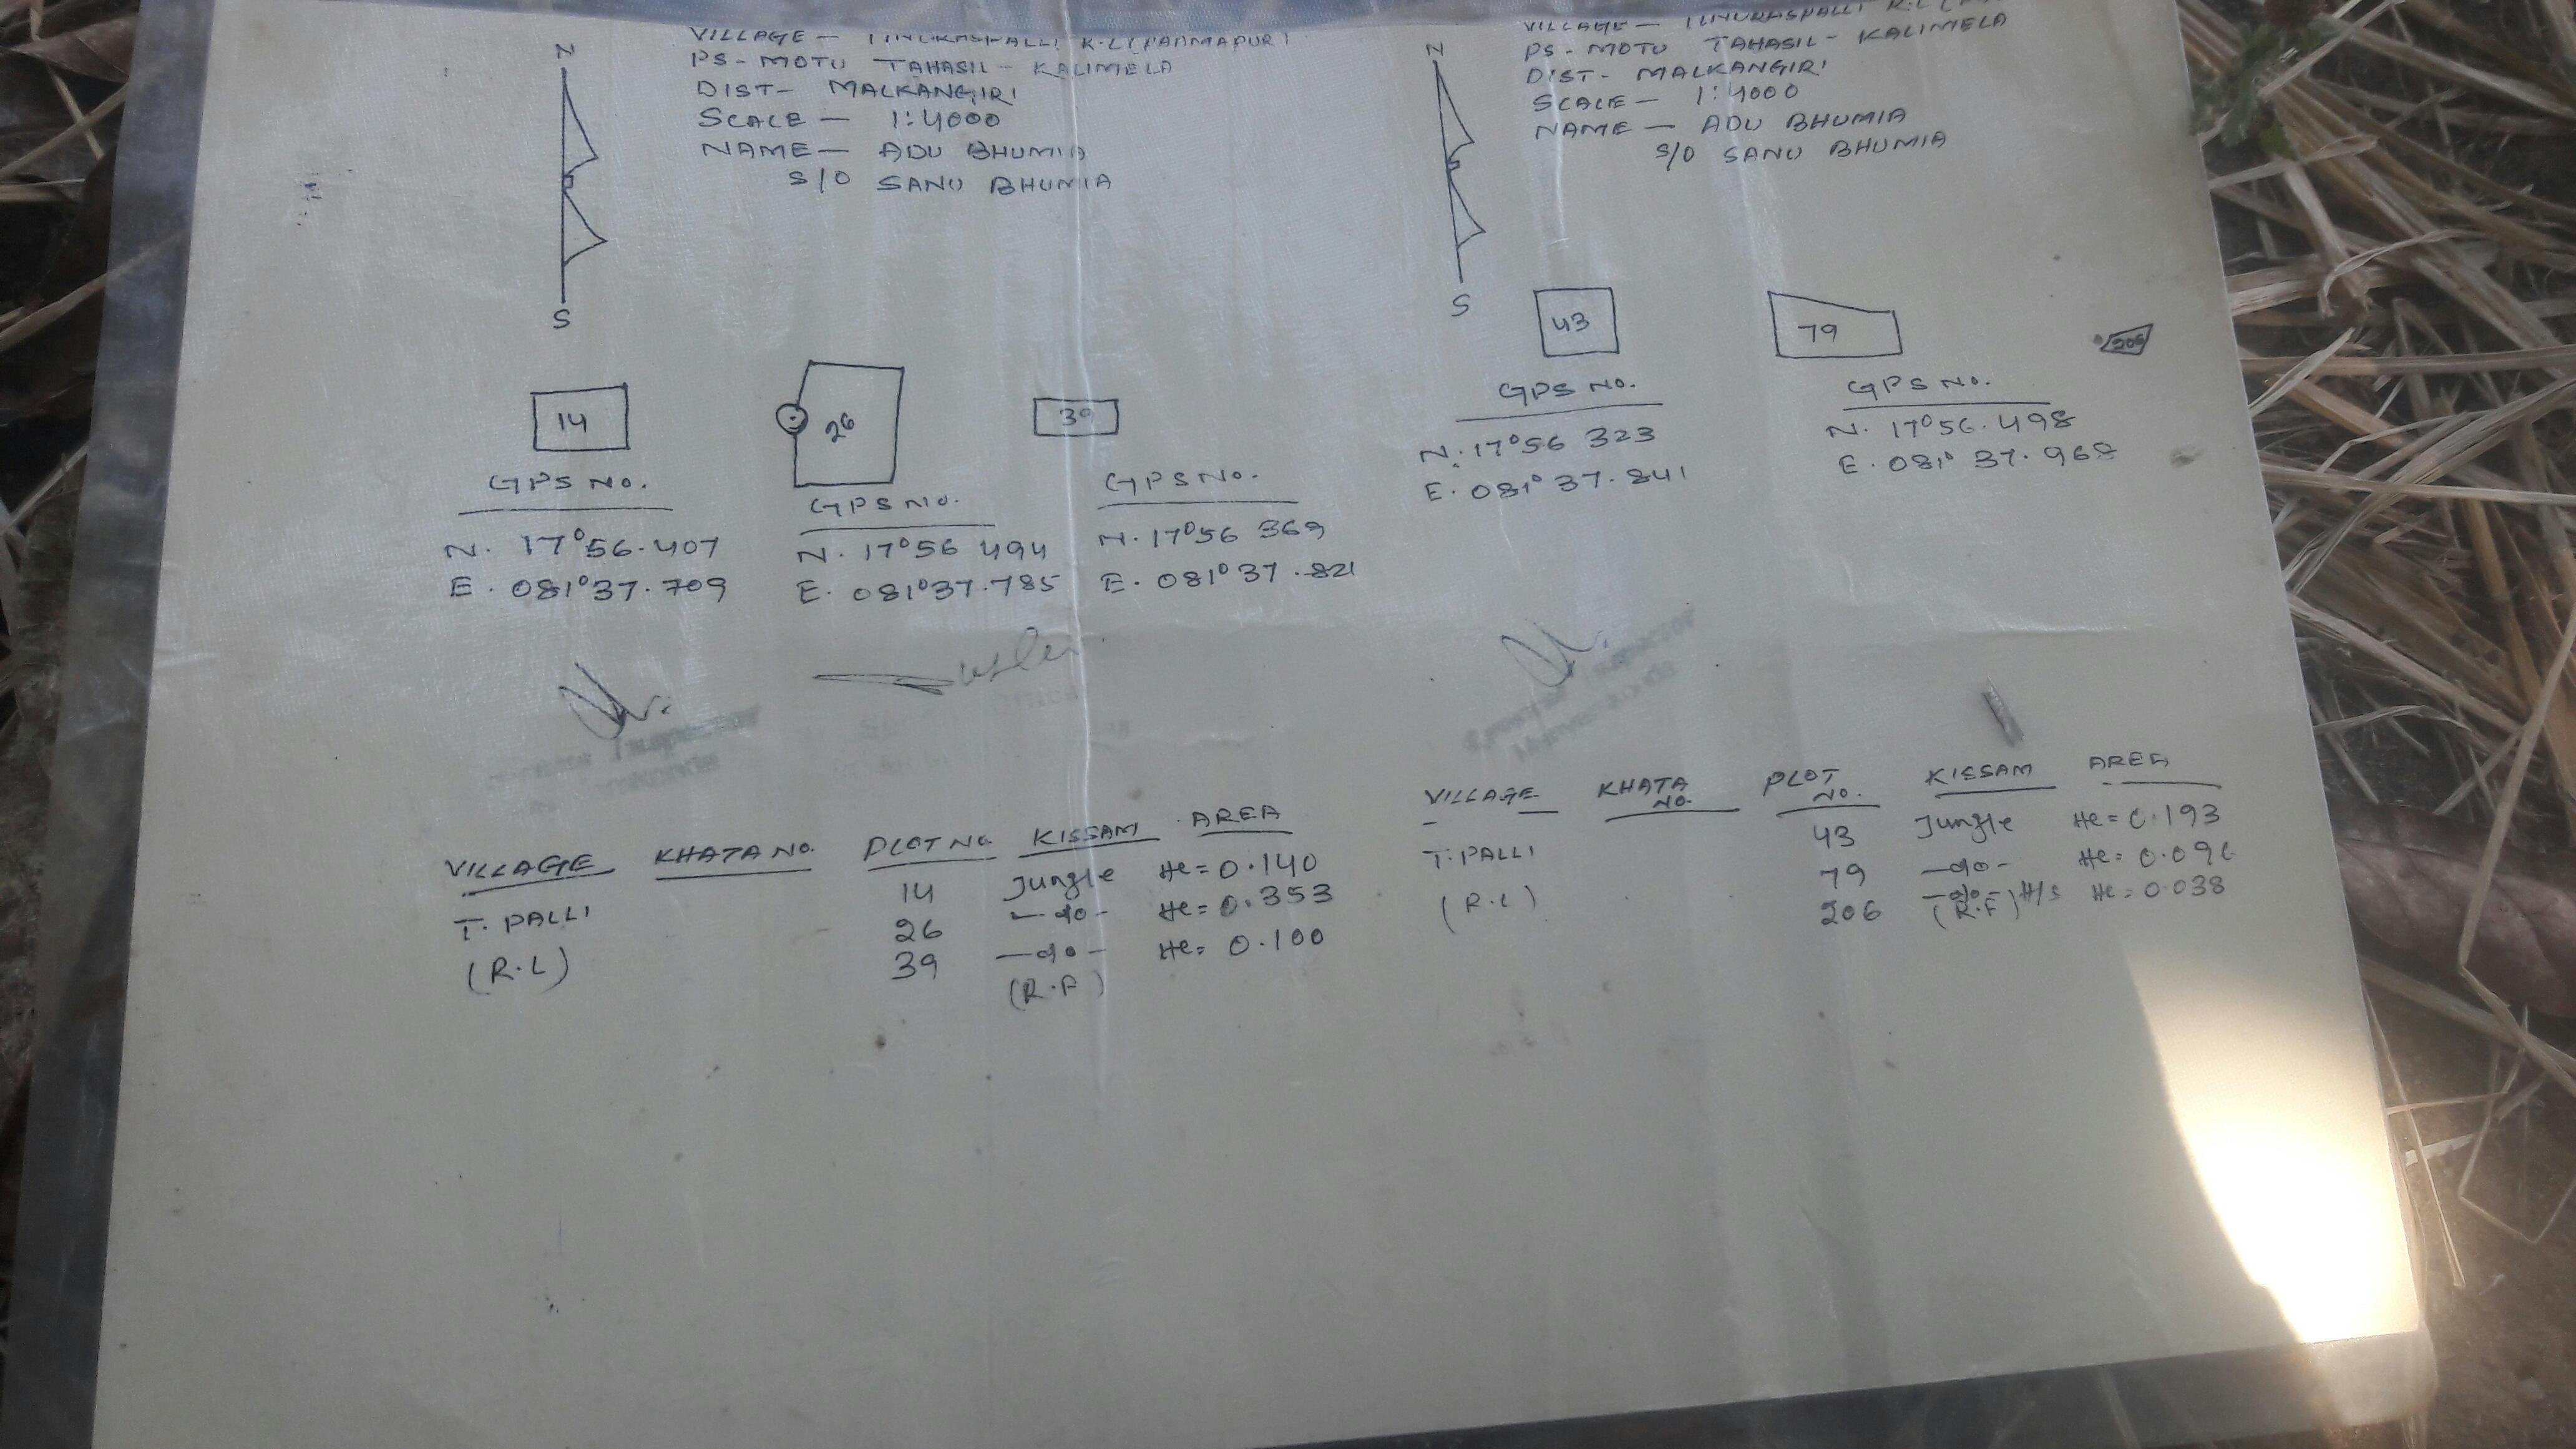 N
VILLAGE —
PS - MOTU TAHASIL - KALIMELA
DIST - MALKANGIRI
SCALE — 1:4000
NAME — ADU BHUMIA
S/O SANU BHUMIA
S
14
26
39
GPS NO.
N. 17°56.407
E. 081°37.709
GPS NO.
N. 17°56 494
E. 081°37.785
GPS NO.
N. 17°56 369
E. 081°37.821
VILLAGE KHATA NO. PLOT NO. KISSAM AREA
T. PALLI 14 Jungle He = 0.140
(R.L) 26 —do— He = 0.353
39 —do— He = 0.100
(R.F)
N
VILLAGE —
PS - MOTU TAHASIL - KALIMELA
DIST - MALKANGIRI
SCALE — 1:4000
NAME — ADU BHUMIA
S/O SANU BHUMIA
S
43
79
206
GPS NO.
N. 17°56 323
E. 081°37.841
GPS NO.
N. 17°56.498
E. 081°37.968
VILLAGE KHATA NO. PLOT NO. KISSAM AREA
T. PALLI 43 Jungle He = 0.193
(R.L) 79 —do—
206 —do— H/S He = 0.038
(R.F)